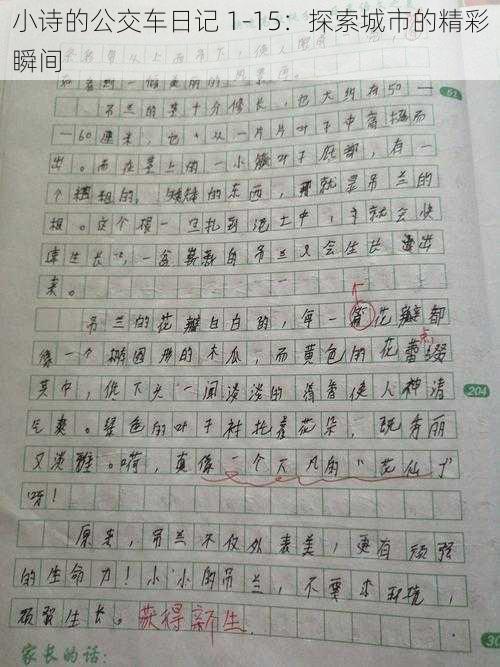 小诗的公交车日记 1-15：探索城市的精彩
瞬间
吊兰的茎十分修长，它大约有50
51
—60厘米，它从一片片叶子中穿插而
出。而在茎上的一小簇叶子底部，有一
个粗粗的，矮矮的东西，那就是吊兰的
根。这个根一旦扎到泥土中，它就会快
速生长，一盆崭新的吊兰又会生长出
来。
吊兰的花瓣白白的，每一篇花瓣都
像一个椭圆形的木瓜，而黄色的花蕾点缀
其中，低下头一闻淡淡的清香使人神清
204
气爽。绿色的叶子衬托着花朵，既秀丽
又淡雅。啊，真像一个下凡的“花仙子”
呀！
原来，吊兰不仅外表美，更有顽强
的生命力！小小的吊兰，不要求环境，
顽强生长。获得新生
家长的话：
30